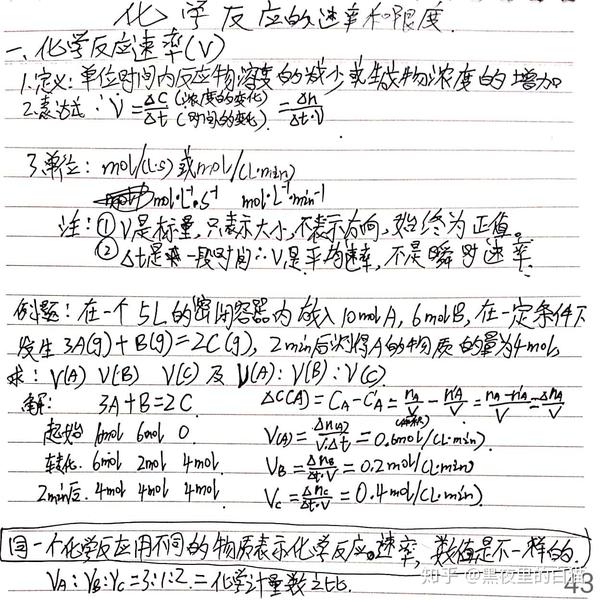 化学反应的速率和限度.
一、化学反应速率(V)
1.定义:单位时间内反应物浓度的减少或生成物浓度的增加
2.表达式:V=ΔC(浓度的变化)/Δt(时间的变化)=Δn/Δt·V
3.单位:mol/(L·s)或mol/(L·min)
mol·L⁻¹·s⁻¹ mol·L⁻¹·min⁻¹
注:①V是标量,只表示大小,不表示方向,始终为正值。
②Δt是某一段时间∴V是平均速率,不是瞬时速率.
例题:在一个5L的密闭容器内放入10molA,6molB,在一定条件下
发生3A(g)+B(g)=2C(g),2min后测得A的物质的量为4mol,
求:V(A) V(B) V(C)及V(A):V(B):V(C).
解: 3A+B=2C. ΔC(A)=CA-C'A=nA/V-n'A/V=nA-n'A/V=ΔnA/V
起始 10mol 6mol 0 V(A)=Δn(A)/V·Δt=0.6mol/(L·min).
转化. 6mol 2mol 4mol. VB=ΔnB/Δt·V=0.2mol/(L·min)
2min后. 4mol 4mol 4mol. VC=ΔnC/Δt·V=0.4mol/(L·min).
同一个化学反应用不同的物质表示化学反应速率,数值是不一样的.
VA:VB:VC=3:1:2.=化学计量数之比.
知乎 @黑夜里的白猫
43